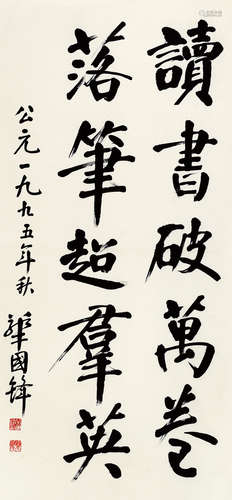 讀書破萬卷
落筆超羣英
公元一九九五年秋
華國鋒